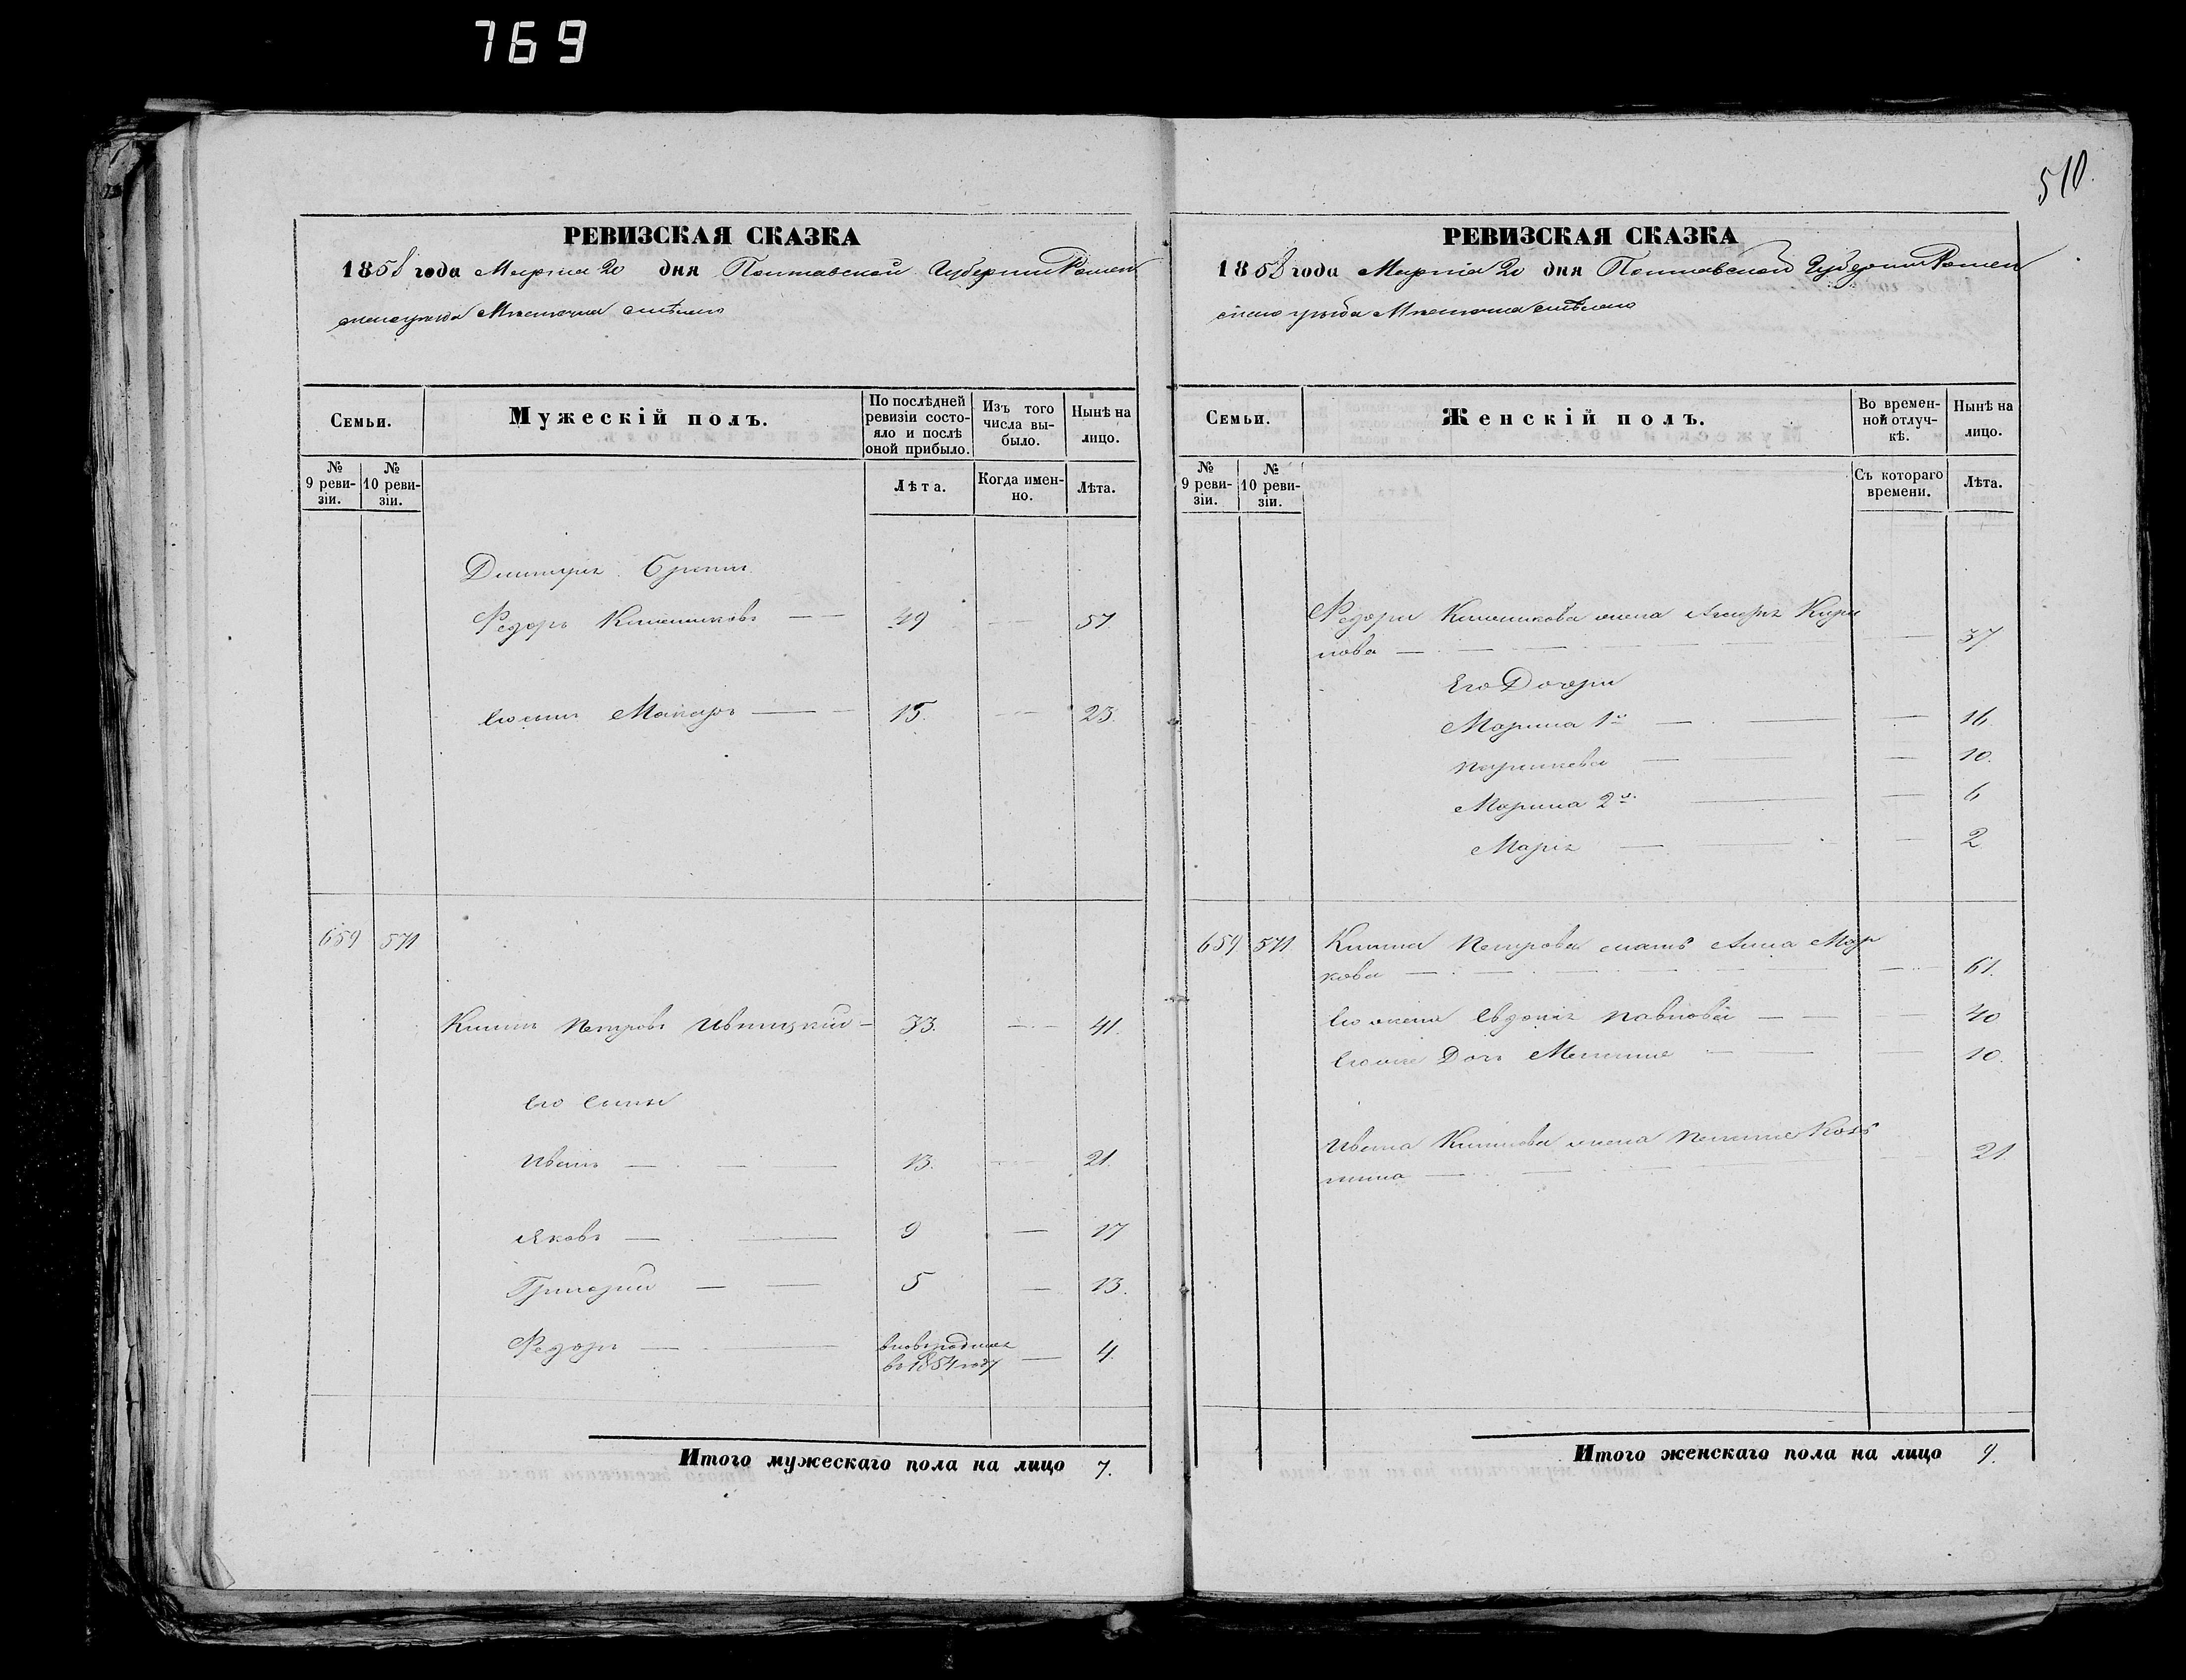 769
510.
РЕВИЗСКАЯ СКАЗКА
1858 года Марта 20 дня Полтавской Губернии Ромен
скаго уезда Местечка Смѣлаго
Семьи.
Мужескій полъ.
По послѣдней ревизіи состо-
яло и послѣ оной прибыло.
Изъ того числа вы-
было.
Нынѣ на лицо.
№ 9 реви-
зіи.
№ 10 реви-
зіи.
Лѣта.
Когда имен-
но.
Лѣта.
Дмитрія
Федоръ Климниковъ 49 57
Его сынъ Макаръ 15. 23.
659 571
Климъ Петровъ Ивницкий 33. 41.
Его Сыны
Иванъ 13. 21.
Яковъ 9 17
Григорий 5 13.
Федоръ
въ 1854 году 4.
Итого мужескаго пола на лицо 7.
РЕВИЗСКАЯ СКАЗКА
1858 года Марта 20 дня Полтавской Губернии Ромен
скаго уезда Местечка Смѣлаго
Семьи.
Женскій полъ.
Во времен-
ной отлуч-
кѣ.
Нынѣ на лицо.
№ 9 реви-
зіи.
№ 10 реви-
зіи.
Съ котораго времени.
Лѣта.
Федора Климникова жена Кири
лова 37
Его Дочери
Марина 1я 16.
Параскева 10.
Марина 2я 6
Марія 2
659 571. Клима Петрова мать Анна Мар
кова 61.
Его жена Евдокія Павлова 40
Его же Дочь 10.
Ивана Климова жена 21
Итого женскаго пола на лицо 9.